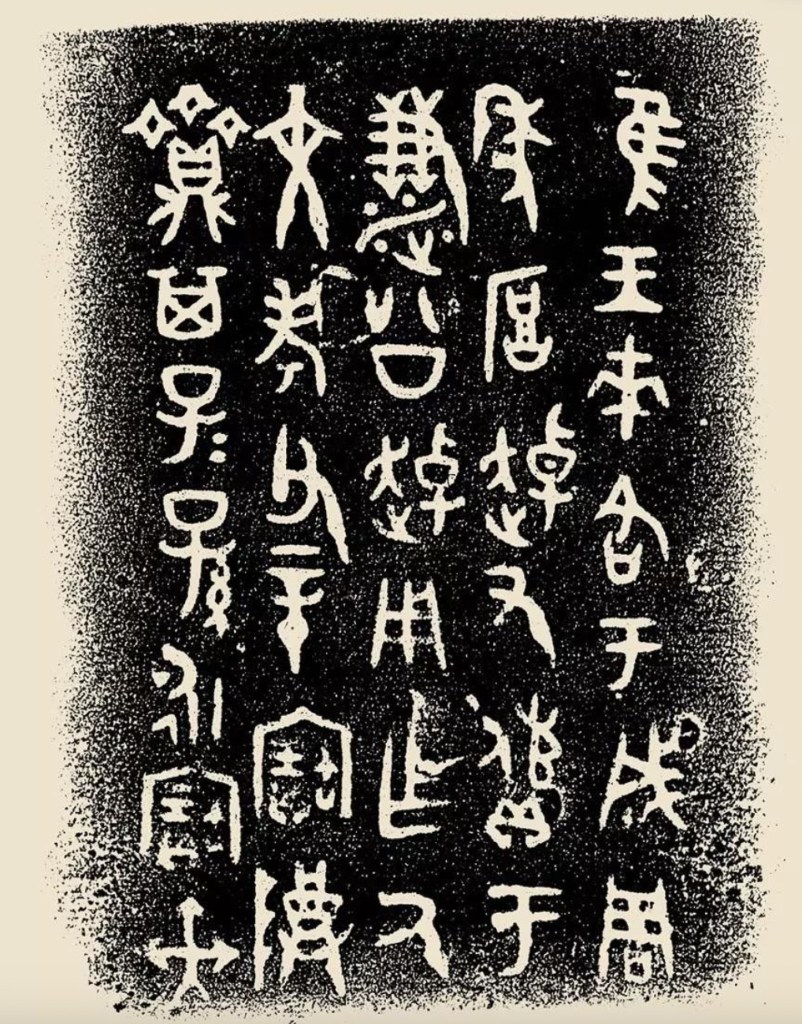 隹王來各于成周
年厚趠又于
溓公趠用乍厥
文考父辛寶尊
齍其子子孫孫永寶束